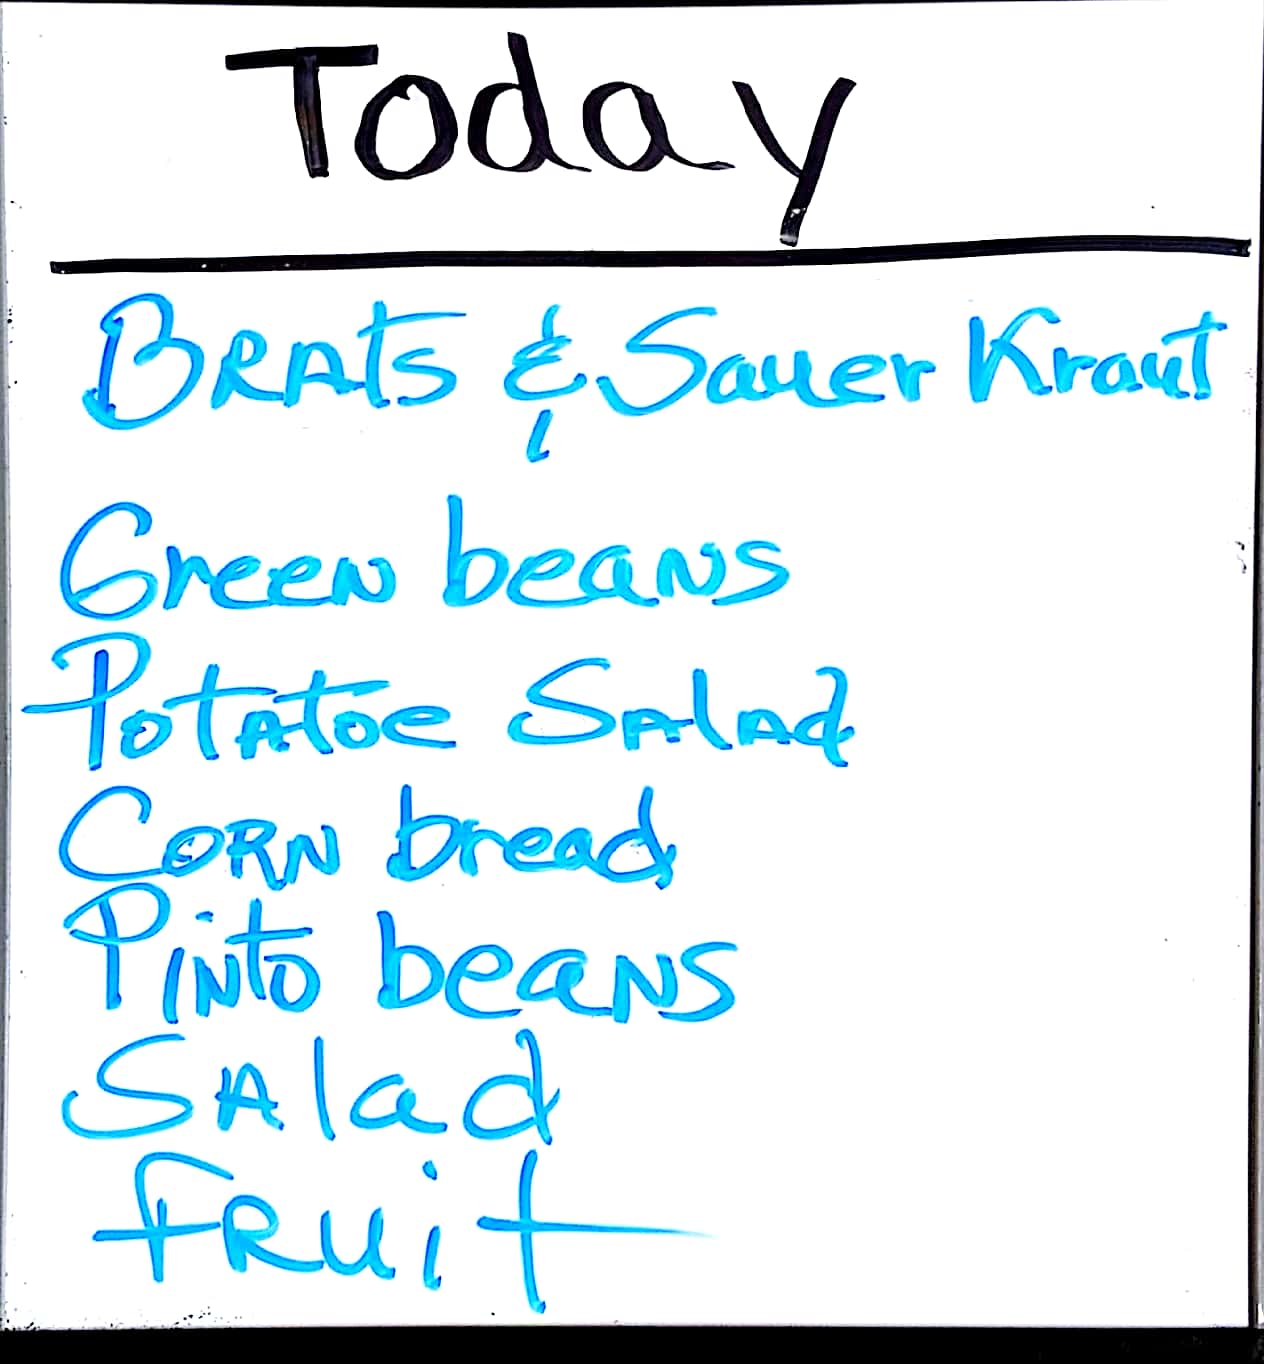 Today
BRAts & Sauer Kraut
Green beans
Potatoe Salad
Corn bread
Pinto beans
Salad
Fruit